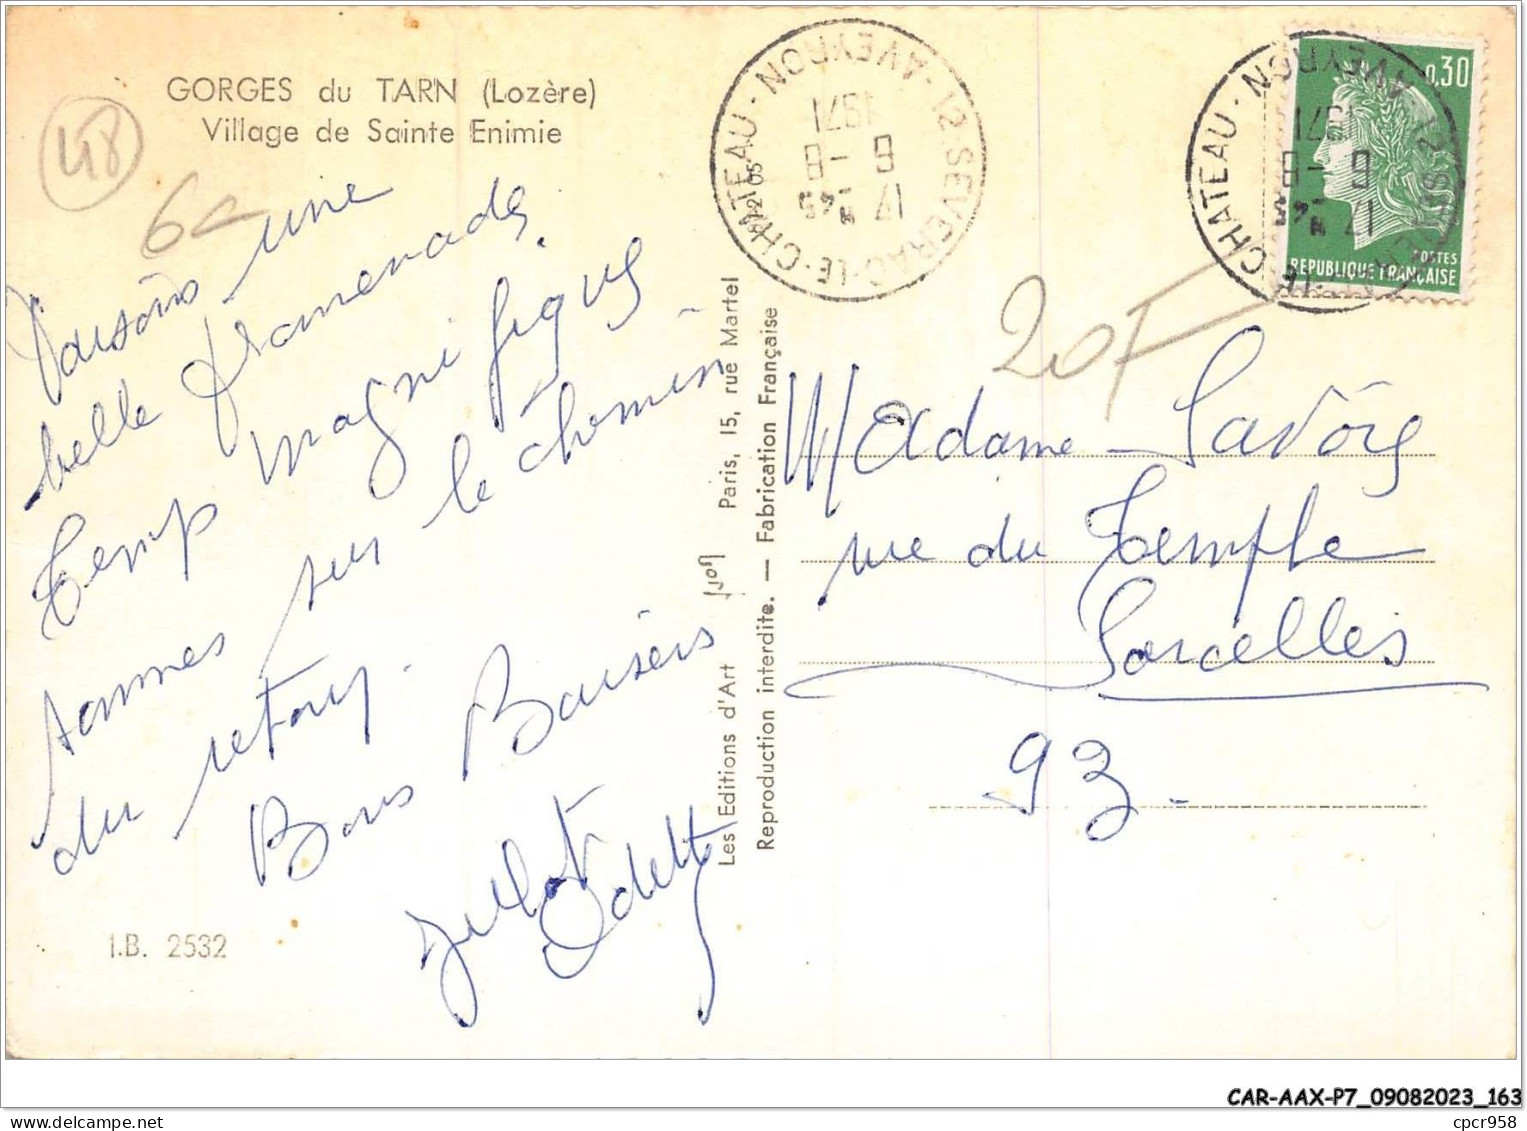 GORGES du TARN (Lozère)
Village de Sainte Enimie
48
6c
Faisons une
belle promenade
temp magnifique
sommes sur le chemin
du retour.
Bons Baisers
Odette
I.B. 2532
Les Editions d'Art Yvon Paris, 15, rue Martel
Reproduction interdite. — Fabrication Française
12 SEVERAC-LE-CHATEAU · AVEYRON
17 H 45
6 - 8
1971
12 SEVERAC-LE-CHATEAU · AVEYRON
17 H 45
6 - 8
1971
0,30
POSTES
REPUBLIQUE FRANÇAISE
20F
Madame Savoie
rue du Temple
Sarcelles
93.
CAR-AAX-P7_09082023_163
cpcr958